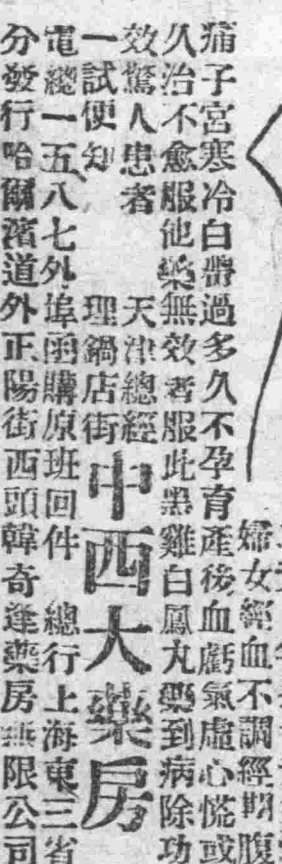 婦女經血不調經期腹
痛子宮寒冷白帶過多久不孕育產後血虧氣虛心慌或
久治不愈服他藥無效者服此黑雞白鳳丸藥到病除功
效驚人患者 天津總經
一試便知 理鍋店街
中西大藥房
電總一五八七外埠函購原班回件 總行上海東三省
分發行哈爾濱道外正陽街西頭韓奇逢藥房無限公司